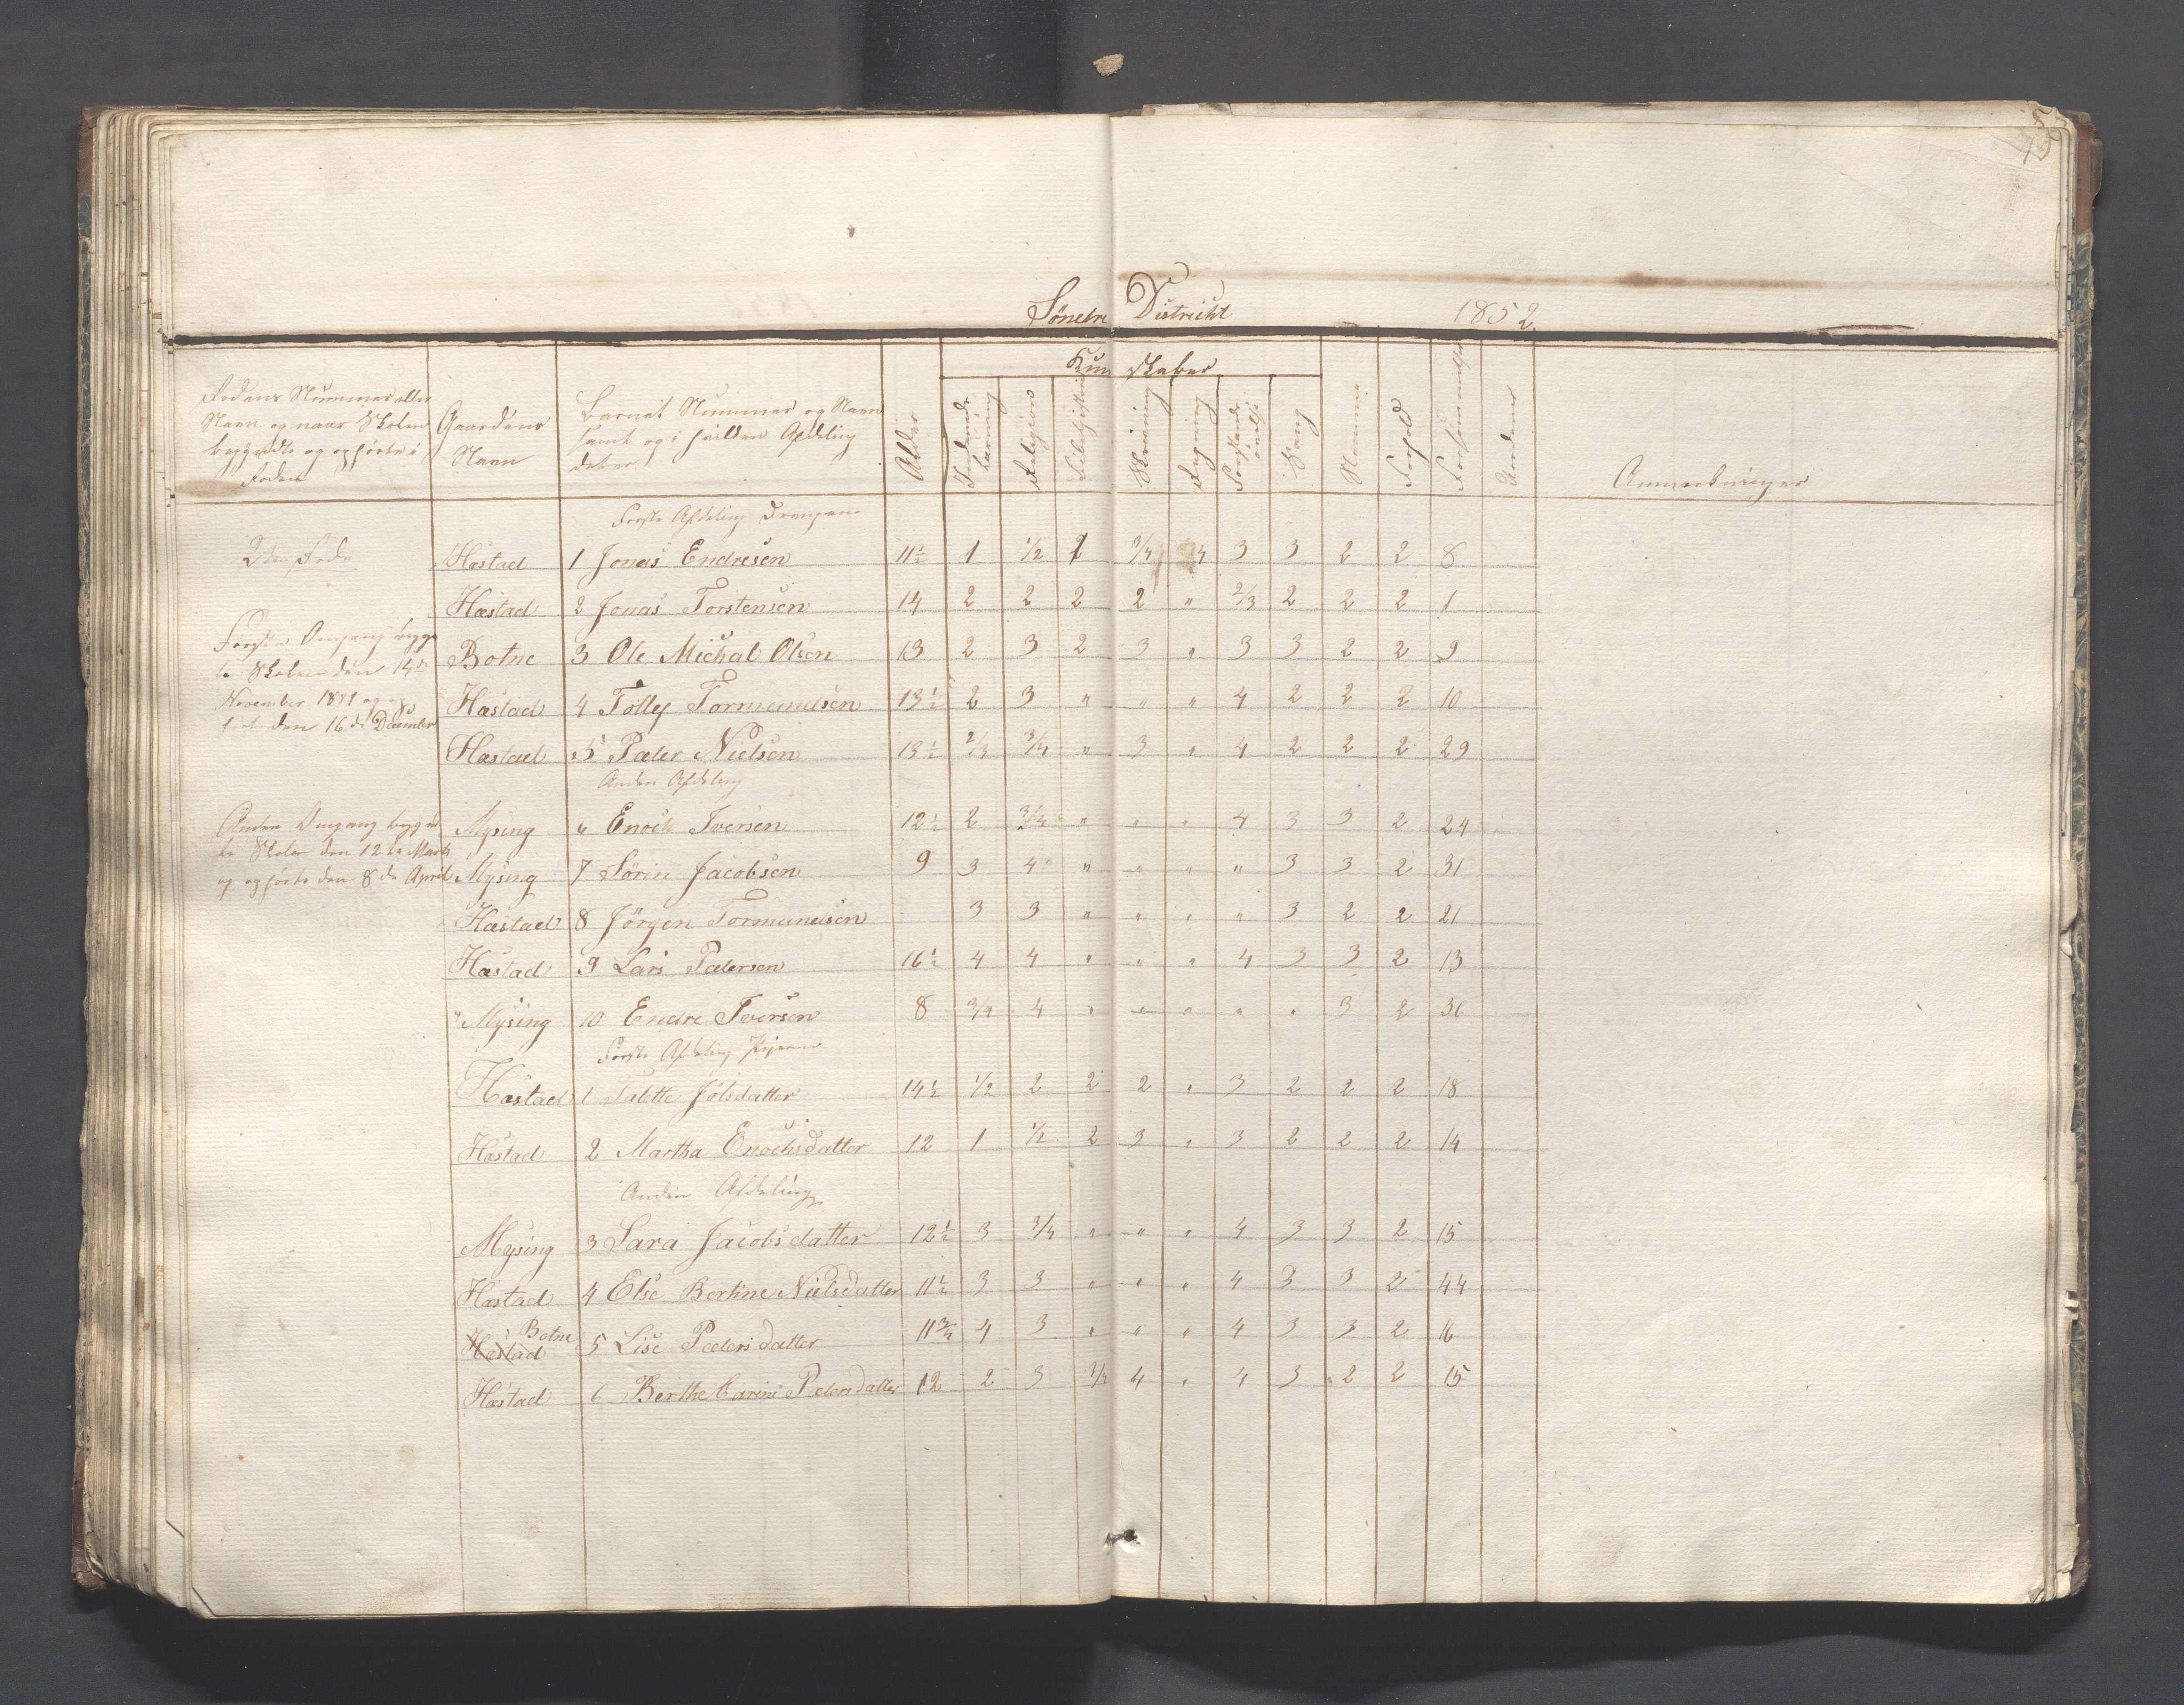 Søndre District 1852
Kundskaber
Rodens Nummer eller Navn og naar Skolen begyndte og ophørte i Roden
Gaardens Navn
Barnets Nummer og Navn samt og i hvilken Afdeling det er
Alder
Indenads Læsning
Religion
Bibelhistorie
Skrivning
Regning
Forstands øvelse
Sang
Nemme
Forhold
Forsømmelser
Anmerkninger
Første Afdeling Drengene
2den Rode
Hæstad 1 Jonas Endresen 11½ 1 1/2 3/4 3 3 2 2 8
Hæstad 2 Jonas Torstensen 14 2 2 2 2 " 2/3 2 2 2 1
Første Omgang begyn
te Skolen den 14de
Botne 3 Ole Michal Olsen 13 2 3 2 3 " 3 3 2 2 9
November 1851 og op
hørte den 16de December
Hæstad 4 Tolly Tormundsen 13½ 2 3 " " " 4 2 2 2 10
Hæstad 5 Pæder Nielsen 13½ 2/3 3/4 " 3 " 4 2 2 2 29
Anden Afdeling
Anden Omgang begynd
te Skolen den 12te Marts
og ophørte den 8de April
Mysing 6 Enoch Iversen 12½ 2 3/4 " " " 4 3 3 2 24
Mysing 7 Sørin Jacobsen 9 3 4 " " " " 3 3 2 31
Hæstad 8 Jörgen Tormundsen 3 3 " " " " 3 2 2 21
Hæstad 9 Lars Pædersen 16½ 4 4 " " " 4 3 3 2 13
" Mysing 10 Endre Iversen 8 3/4 4 " " " " " 3 2 36
Første Afdeling Pigerne
Hæstad 1 Talette Jølsdatter 14½ 1/2 2 2 2 " 3 2 2 2 18
Hæstad 2 Martha Enochsdatter 12 1 1/2 2 3 " 3 2 2 2 14
Anden Afdeling
Mysing 3 Sara Jacobsdatter 12½ 3 3/4 " " " 4 3 3 2 15
Hæstad 4 Else Bertine Nielsdatter 11½ 3 3 " " " 4 3 3 2 44
Botne
Hæstad 5 Lise Pædersdatter 11¾ 4 3 " " " 4 3 3 2 16
Hæstad 6 Berthe Carine Pedersdatter 12 2 3 3/4 4 " 4 3 2 2 15